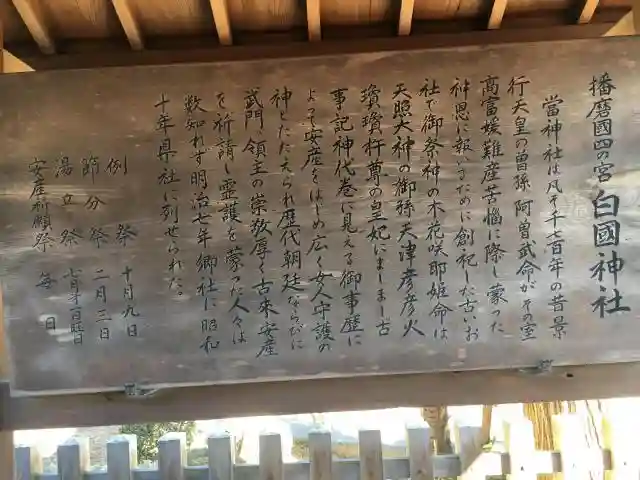 播磨國四の宮 白國神社
當神社は凡そ千七百年の昔景
行天皇の曽孫 阿曽武命がその室
高富媛難産苦惱に際し蒙った
神恩に報いるために創祀した古いお
社で御祭神の木花咲耶姫命は
天照大神の御孫天津彦彦火
瓊瓊杵尊の皇妃にましまし古
事記神代巻に見える御事歴に
よって安産をはじめ広く女人守護の
神とたたえられ歴代朝廷ならびに
武門、領主の崇敬厚く古来安産
を祈請し霊護を蒙った人々は
数知れず明治七年郷社に昭和
十年県社に列せられた。
例祭 十月九日
節分祭 二月三日
湯立祭 七月第二日曜日
安産祈願祭 毎日